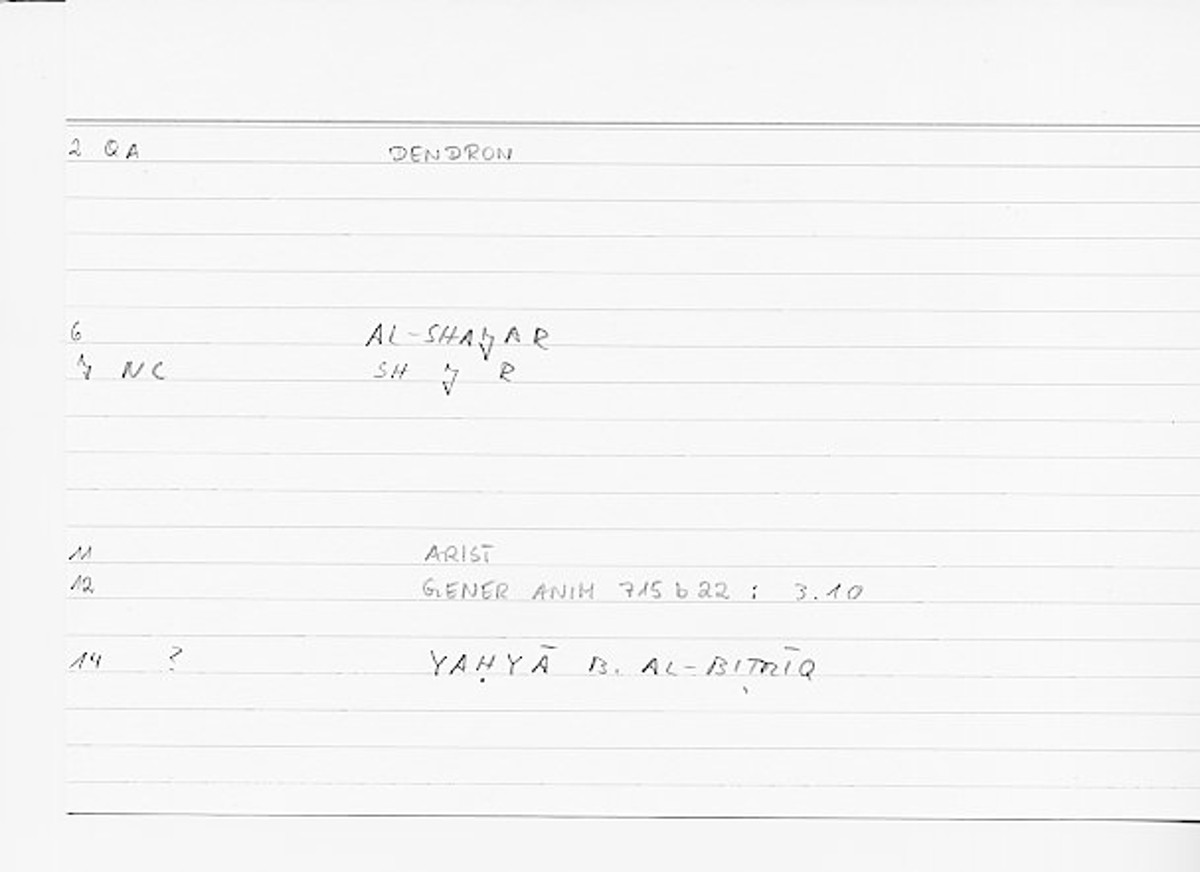 2 QA DENDRON
6 AL-SHAJAR
7 NC SH J R
11 ARIST
12 GENER ANIM 715 b 22 : 3.10
14 ? YAḤYĀ B. AL-BIṬRĪQ